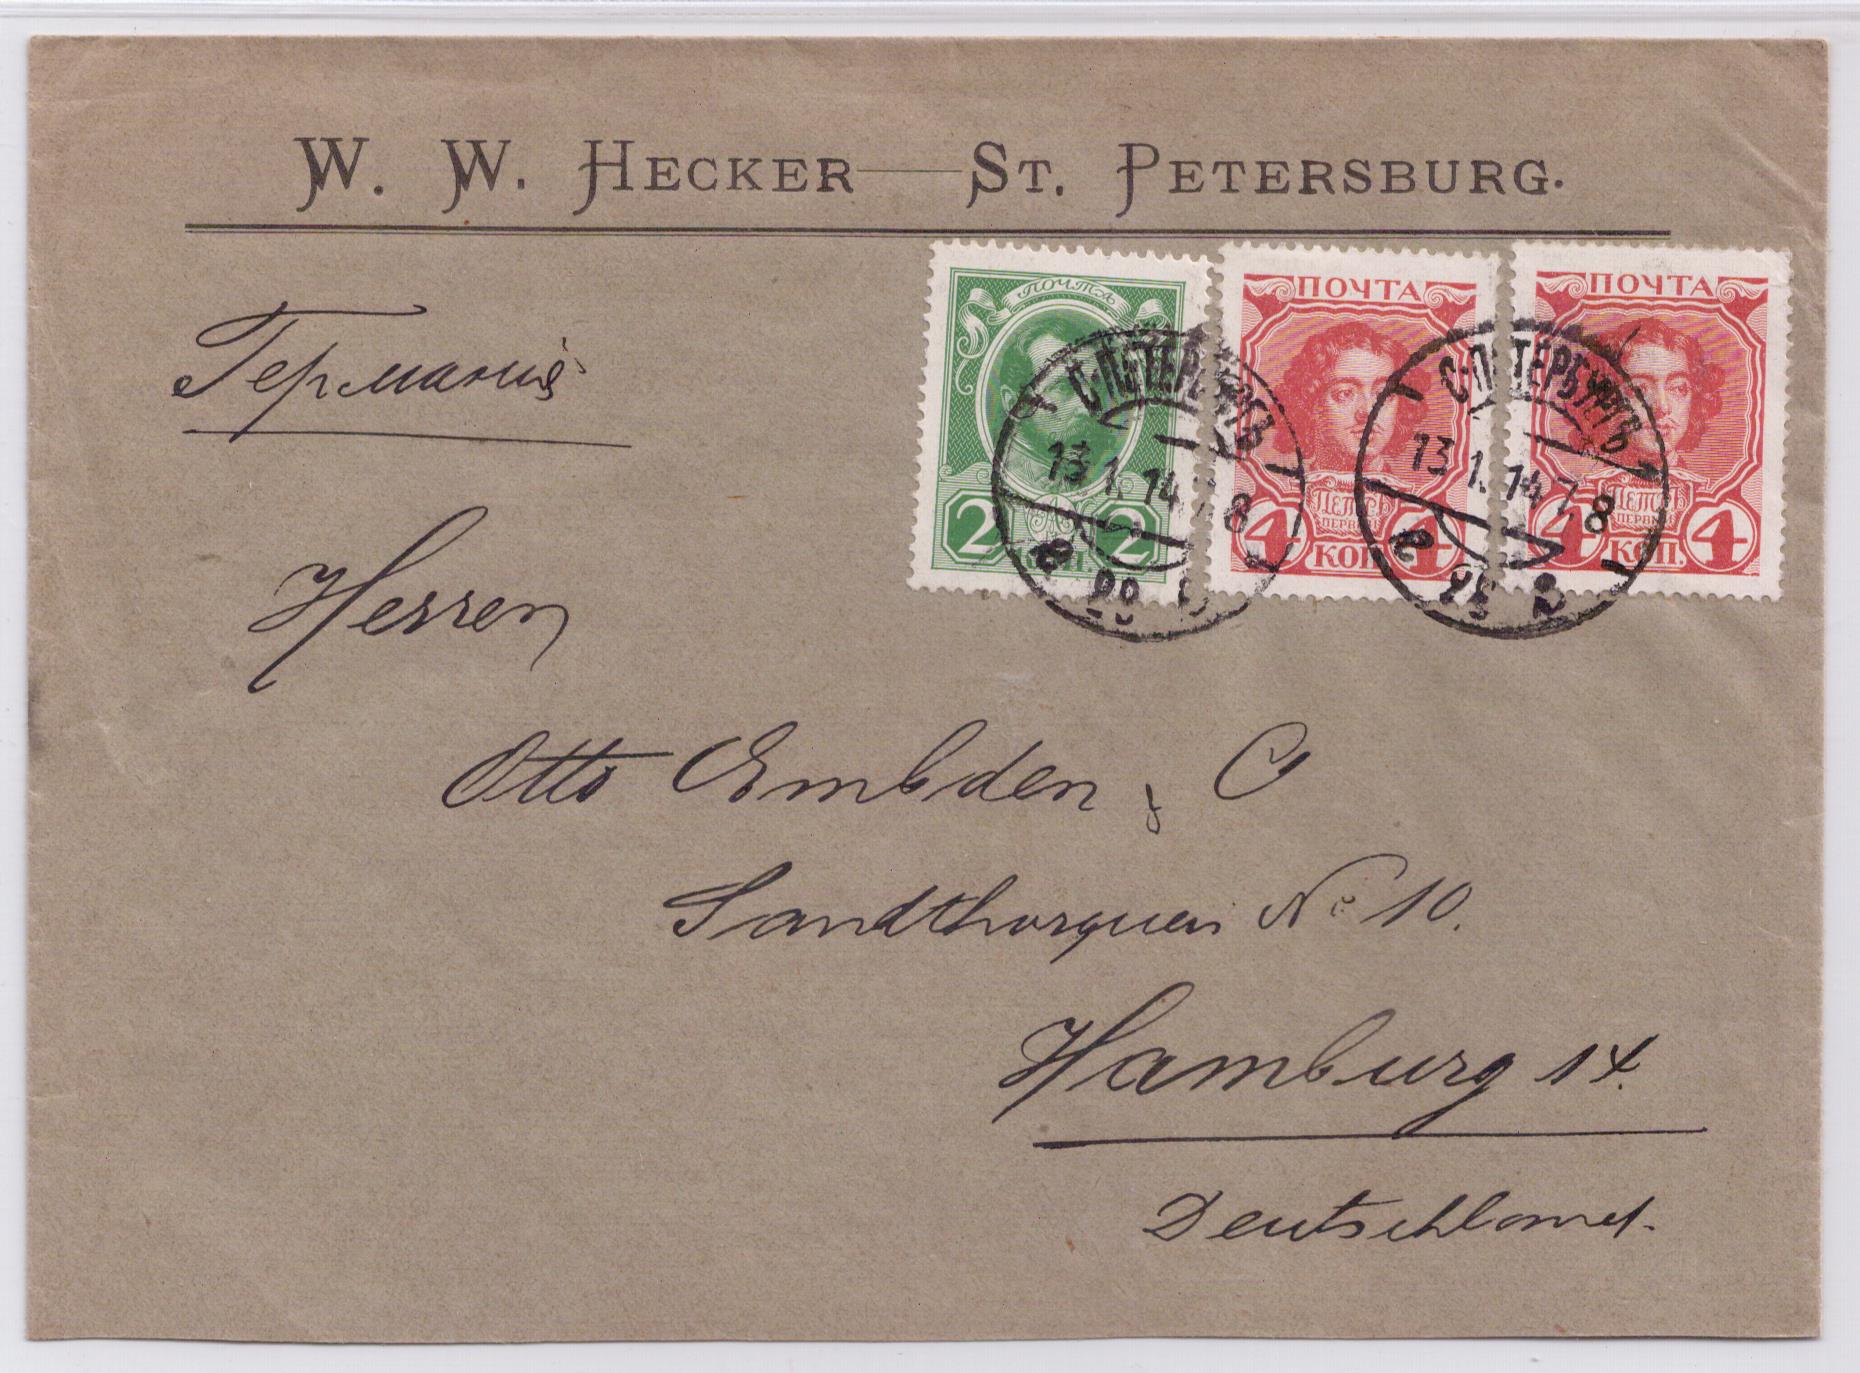 W. W. HECKER — ST. PETERSBURG.
ПОЧТА
2 2
ПОЧТА
ПЕТРЪ
ПЕРВЫЙ
4 4
КОП.
ПОЧТА
ПЕТРЪ
ПЕРВЫЙ
4 4
КОП.
С-ПЕТЕРБУРГЪ
13 1. 14 8
С-ПЕТЕРБУРГЪ
13 1. 14 7. 8
Германія
Herren
Otto Embden & C
Sandthorquai No 10.
Hamburg 14.
Deutschland.